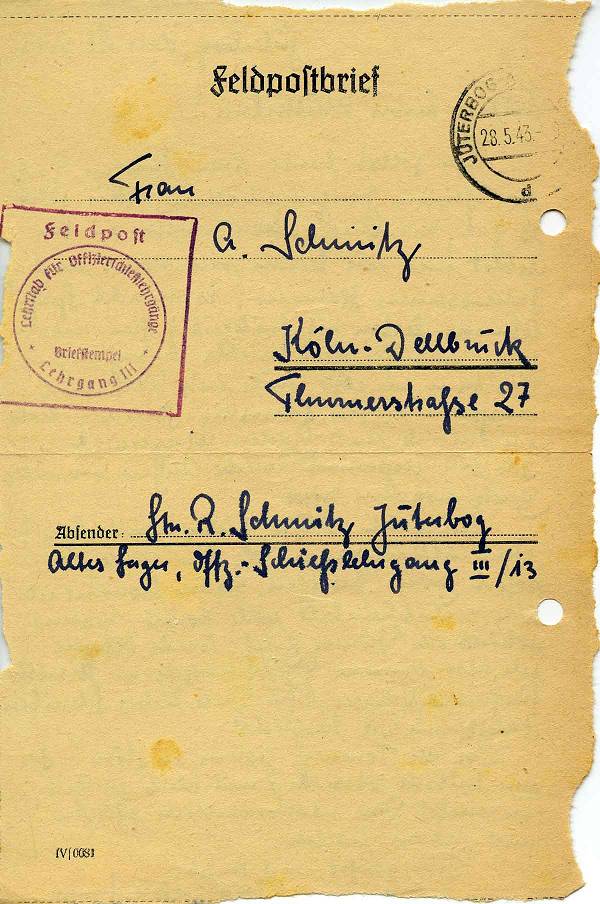 Feldpostbrief
JÜTERBOG
28.5.43.-
d
Frau
A. Schmitz
Feldpost
Lehrstab für Offizierschießlehrgänge
Briefstempel
* Lehrgang III *
Köln-Dellbrück
Thurnerstraße 27
Absender: R. Schmitz Jüterbog
Altes Lager, Offz.-Schießlehrgang III/13
IV/0681